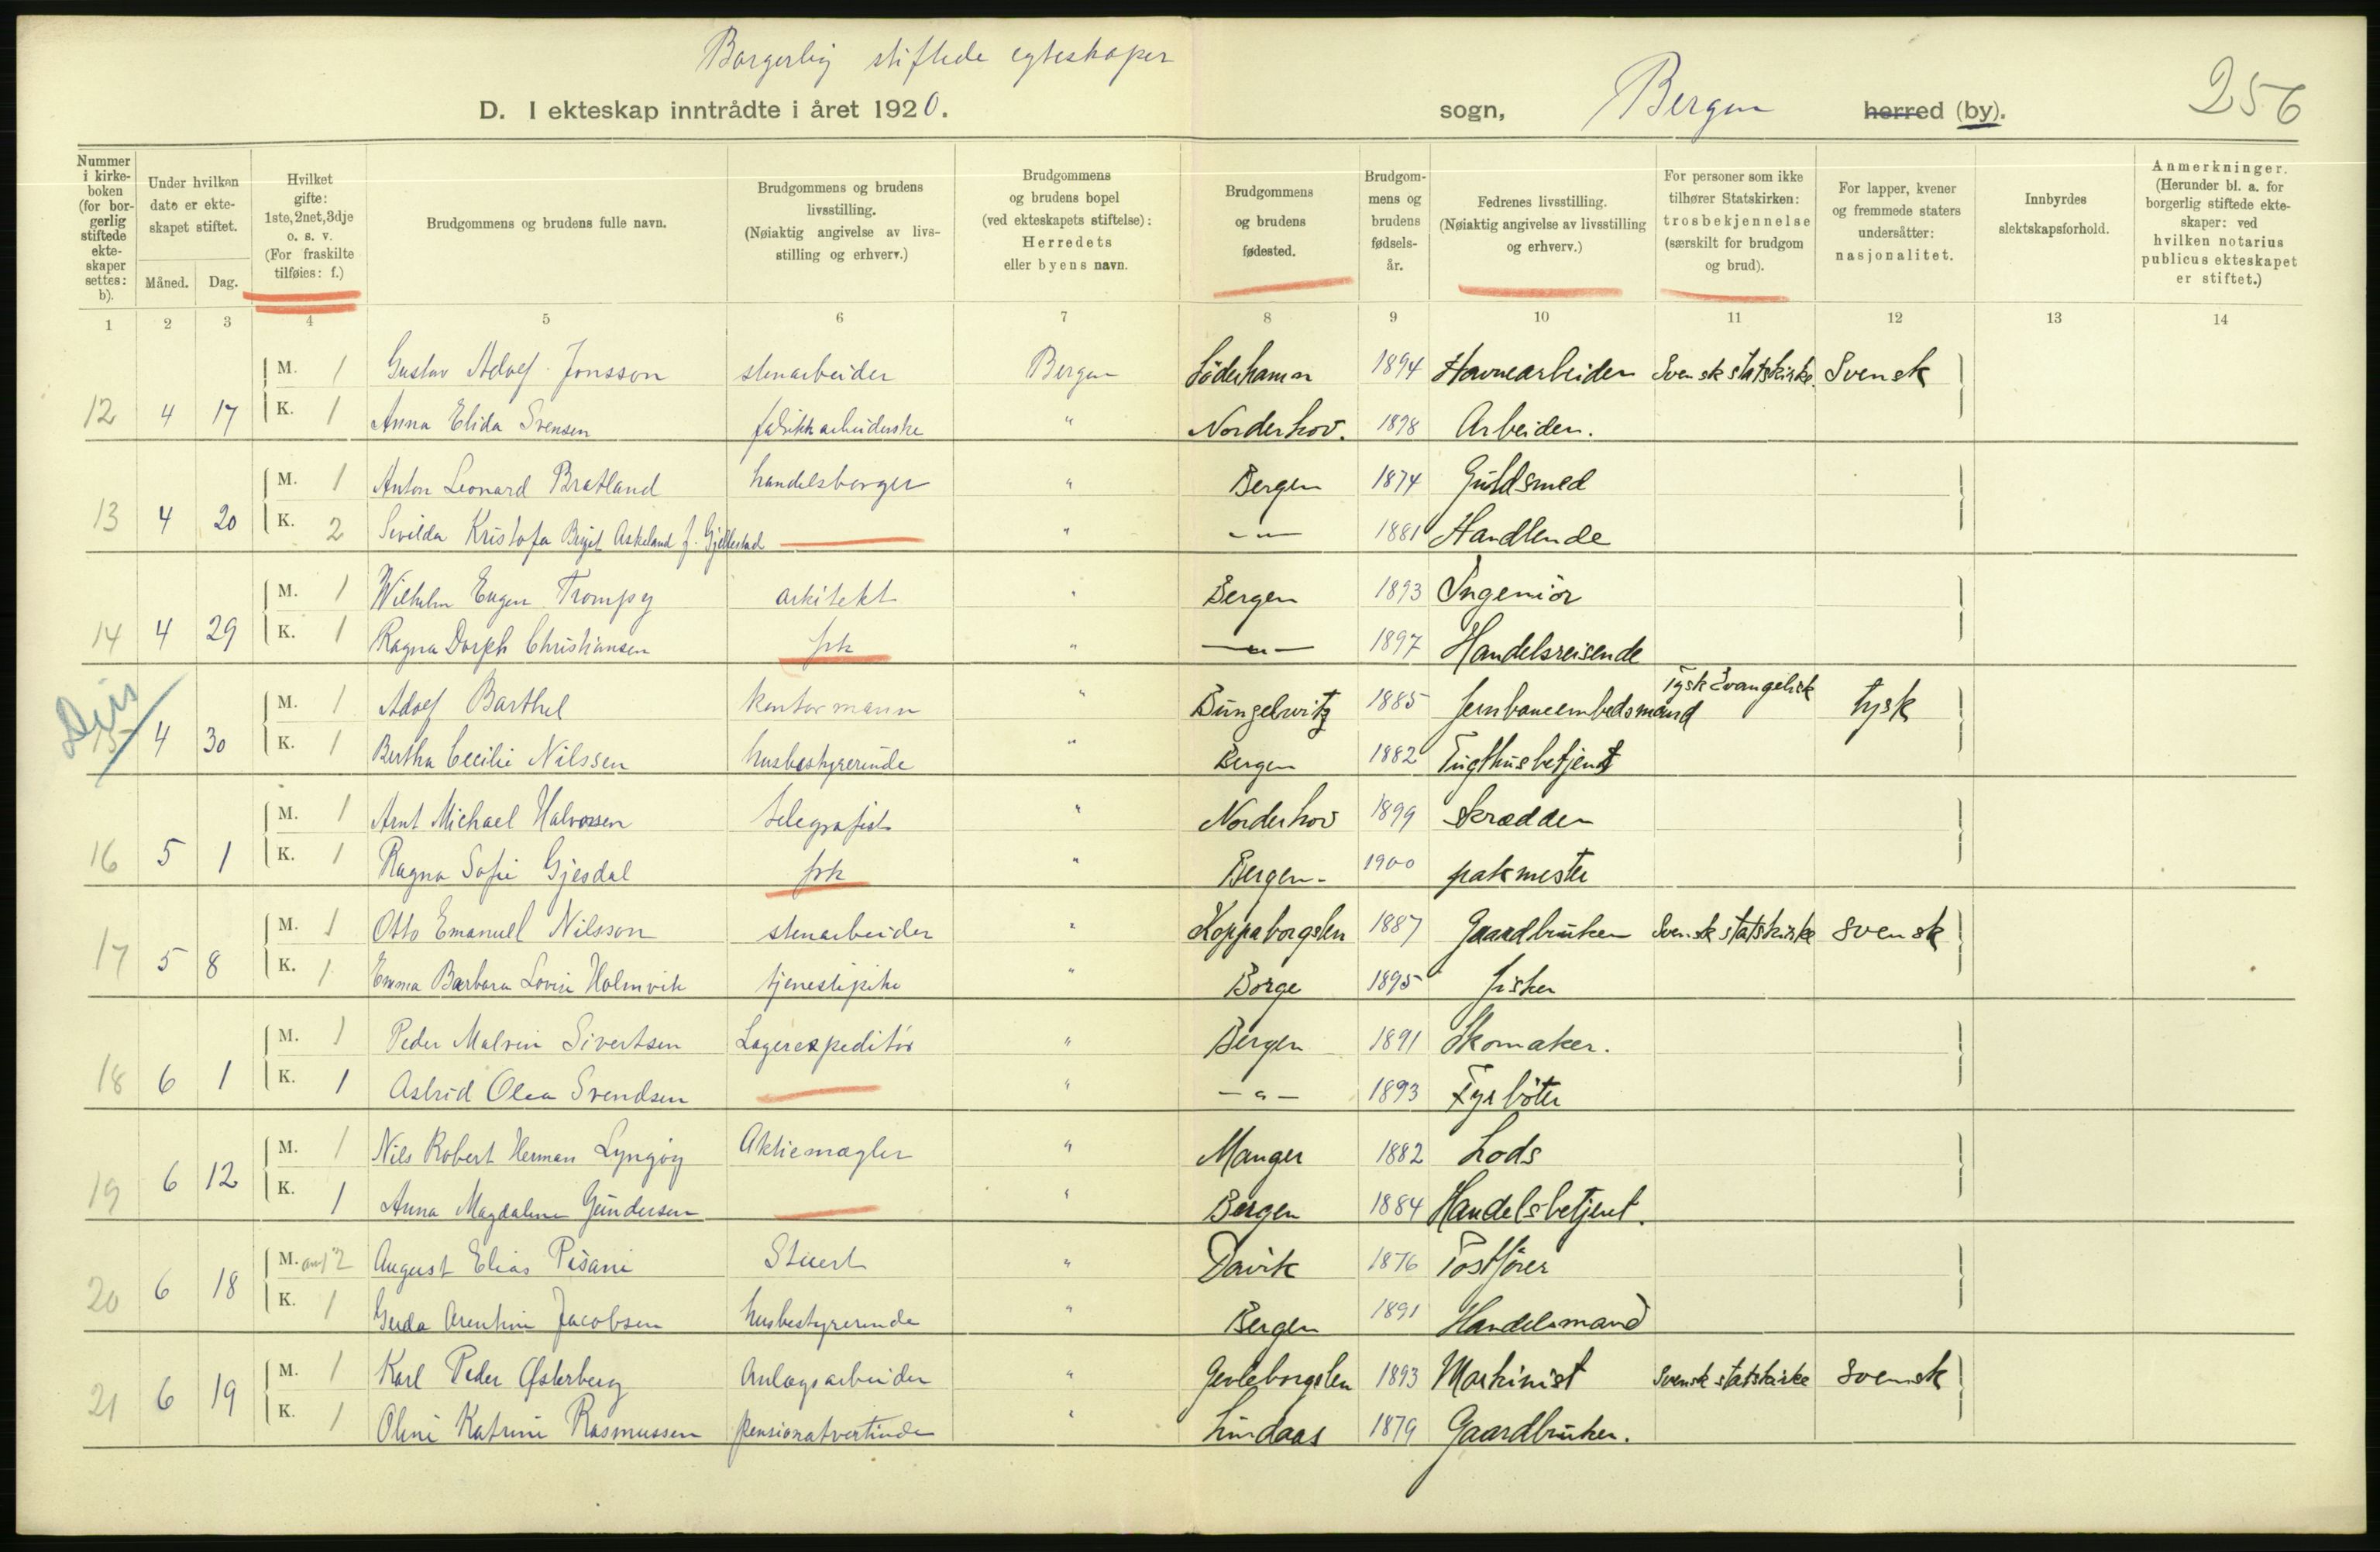 Borgerlig stiftede egteskaper
D. I ekteskap inntrådte i året 1920. sogn, Bergen herred (by). 256
Nummer i kirke-boken (for bor-gerlig stiftede ekte-skaper settes: b).
Under hvilken dato er ekte-skapet stiftet.
Måned. Dag.
Hvilket gifte: 1ste, 2net, 3dje o. s. v. (For fraskilte tilføies: f.)
Brudgommens og brudens fulle navn.
Brudgommens og brudens livsstilling. (Nøiaktig angivelse av livs-stilling og erhverv.)
Brudgommens og brudens bopel (ved ekteskapets stiftelse): Herredets eller byens navn.
Brudgommens og brudens fødested.
Brudgom-mens og brudens fødsels-år.
Fedrenes livsstilling. (Nøiaktig angivelse av livsstilling og erhverv.)
For personer som ikke tilhører Statskirken: trosbekjennelse (særskilt for brudgom og brud).
For lapper, kvener og fremmede staters undersåtter: nasjonalitet.
Innbyrdes slektskapsforhold.
Anmerkninger. (Herunder bl. a. for borgerlig stiftede ekte-skaper: ved hvilken notarius publicus ekteskapet er stiftet.)
1 2 3 4 5 6 7 8 9 10 11 12 13 14
M. 1 Gustav Adolf Jonsson stenarbeider Bergen Söderhamn 1894 Havnearbeider Svensk statskirke Svensk
12 4 17 K. 1 Anna Elida Svensen fabrikkarbeiderske " Norderhov. 1898 Arbeider.
M. 1 Anton Leonard Bratland handelsborger " Bergen 1874 Guldsmed
13 4 20 K. 2 Sevilda Kristofa Birgit Askeland f. Gjellestad " -"- 1881 Handlende
M. 1 Wilhelm Eugen Trompy arkitekt " Bergen 1893 Ingeniör
14 4 29 K. 1 Ragna Dorph Christiansen frk " -"- 1897 Handelsreisende
M. 1 Adolf Barthel kontormann " Bungelwitz 1885 Jernbaneembedsmand Tysk Evangelisk tysk
15 4 30 K. 1 Bertha Cecilie Nilssen husbestyrerinde " Bergen 1882 Tugthusbetjent
M. 1 Arnt Michael Halvorsen telegrafist " Norderhov 1899 Skrædder
16 5 1 K. 1 Ragna Sofie Gjesdal frk " Bergen 1900 pakmester
M. 1 Otto Emanuel Nilsson stenarbeider " Koppaborgslen 1887 Gaardbruker Svensk statskirke svensk
17 5 8 K. 1 Emma Barbara Lovise Holmvik tjenestepike " Borge 1895 fisker
M. 1 Peder Malvin Sivertsen Lagerexpeditör " Bergen 1891 Skomaker.
18 6 1 K. 1 Astrid Olea Svendsen " -"- 1893 Fyrböter
M. 1 Nils Robert Herman Lyngöy Aktiemægler " Manger 1882 Lods
19 6 12 K. 1 Anna Magdalene Gundersen " Bergen 1884 Handelsbetjent.
M. 2 August Elias Pisani Stuert " Davik 1876 Postförer
20 6 18 K. 1 Gerda Arentine Jacobsen husbestyrerinde " Bergen 1891 Handelsmand
M. 1 Karl Peder Østerberg Anlægsarbeider " Gevleborgslen 1893 Maskinist Svensk statskirke svensk
21 6 19 K. 1 Oline Katrine Rasmussen pensionatvertinde " Lindaas 1879 Gaardbruker.